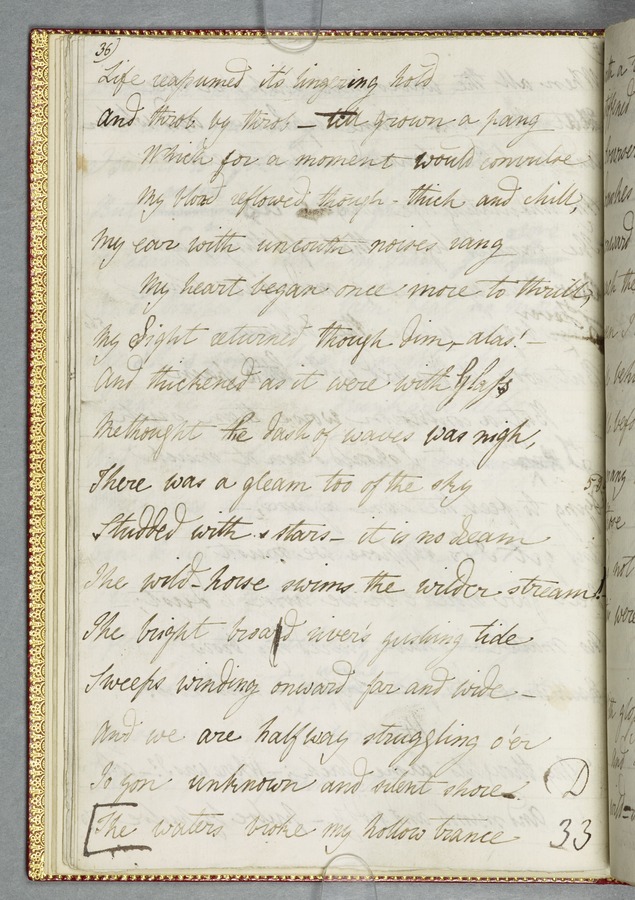 36)
Life reassumed it's lingering hold
And throb by throb — till grown a pang
Which for a moment would convulse
My blood reflowed though — thick and chill,
My ear with uncouth noises rang
My heart began once more to thrill,
My Sight returned though dim, alas! —
And thickened as it were with Glass
Methought the dash of waves was nigh,
There was a gleam too of the sky
Studded with stars — it is no dream
The wild horse swims the wilder stream!
The bright broad river's gushing tide
Sweeps winding onward far and wide —
And we are halfway struggling o'er
To yon unknown and silent shore
D
The waters broke my hollow trance
33